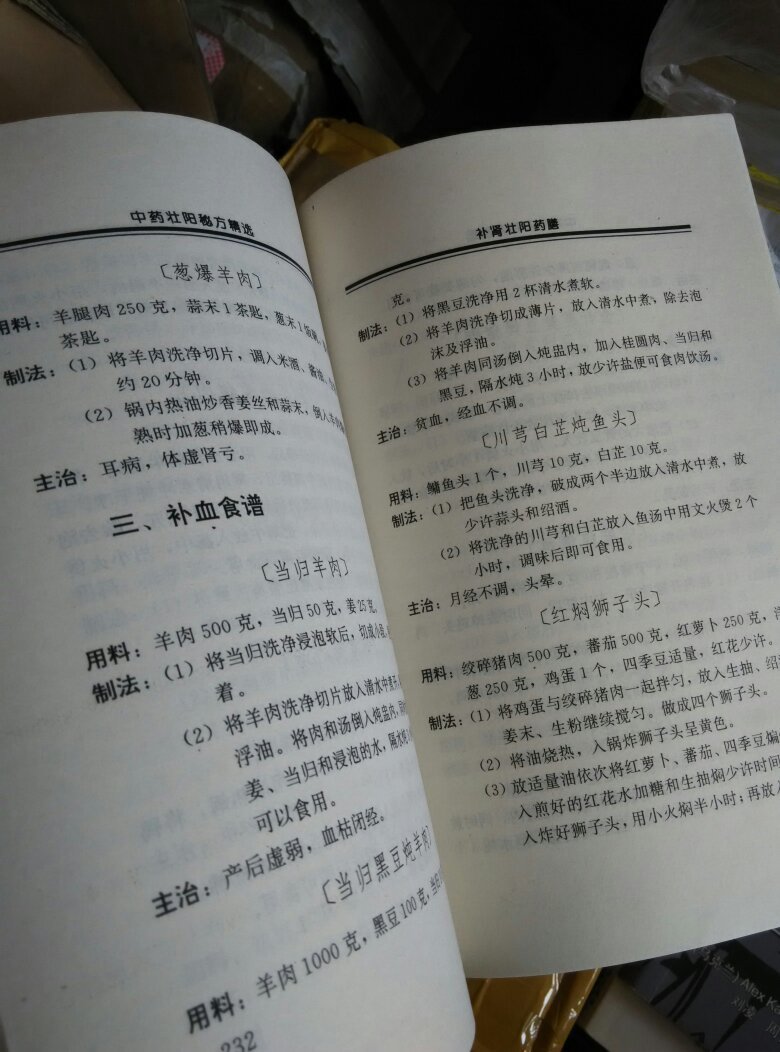 中药壮阳秘方精选
〔葱爆羊肉〕
用料：羊腿肉 250 克，蒜末 1 茶匙，葱末 1
茶匙。
制法：（1）将羊肉洗净切片，调入米酒、酱油、
约 20 分钟。
（2）锅内热油炒香姜丝和蒜末，倒入
熟时加葱稍爆即成。
主治：耳病，体虚肾亏。
三、补血食谱
〔当归羊肉〕
用料：羊肉 500 克，当归 50 克，姜 25 克。
制法：（1）将当归洗净浸泡软后，切成小
着。
（2）将羊肉洗净切片放入清水中煮
浮油。将肉和汤倒入炖盅内，
姜、当归和浸泡的水，隔水
可以食用。
主治：产后虚弱，血枯闭经。
〔当归黑豆炖羊肉〕
用料：羊肉 1000 克，黑豆 100 克，当归
232
补肾壮阳药膳
克。
制法：（1）将黑豆洗净用 2 杯清水煮软。
（2）将羊肉洗净切成薄片，放入清水中煮、除去泡
沫及浮油。
（3）将羊肉同汤倒入炖盅内，加入桂圆肉、当归和
黑豆，隔水炖 3 小时，放少许盐便可食肉饮汤。
主治：贫血，经血不调。
〔川芎白芷炖鱼头〕
用料：鳙鱼头 1 个，川芎 10 克，白芷 10 克。
制法：（1）把鱼头洗净，破成两个半边放入清水中煮，放
少许蒜头和绍酒。
（2）将洗净的川芎和白芷放入鱼汤中用文火煲 2 个
小时，调味后即可食用。
主治：月经不调，头晕。
〔红焖狮子头〕
用料：绞碎猪肉 500 克，蕃茄 500 克，红萝卜 250 克，洋
葱 250 克，鸡蛋 1 个，四季豆适量，红花少许。
制法：（1）将鸡蛋与绞碎猪肉一起拌匀，放入生抽、绍
姜末、生粉继续搅匀。做成四个狮子头。
（2）将油烧热，入锅炸狮子头呈黄色。
（3）放适量油依次将红萝卜、蕃茄、四季豆煸
入煎好的红花水加糖和生抽焖少许时间
入炸好狮子头，用小火焖半小时；再放入
克兰) Alex
刘凌